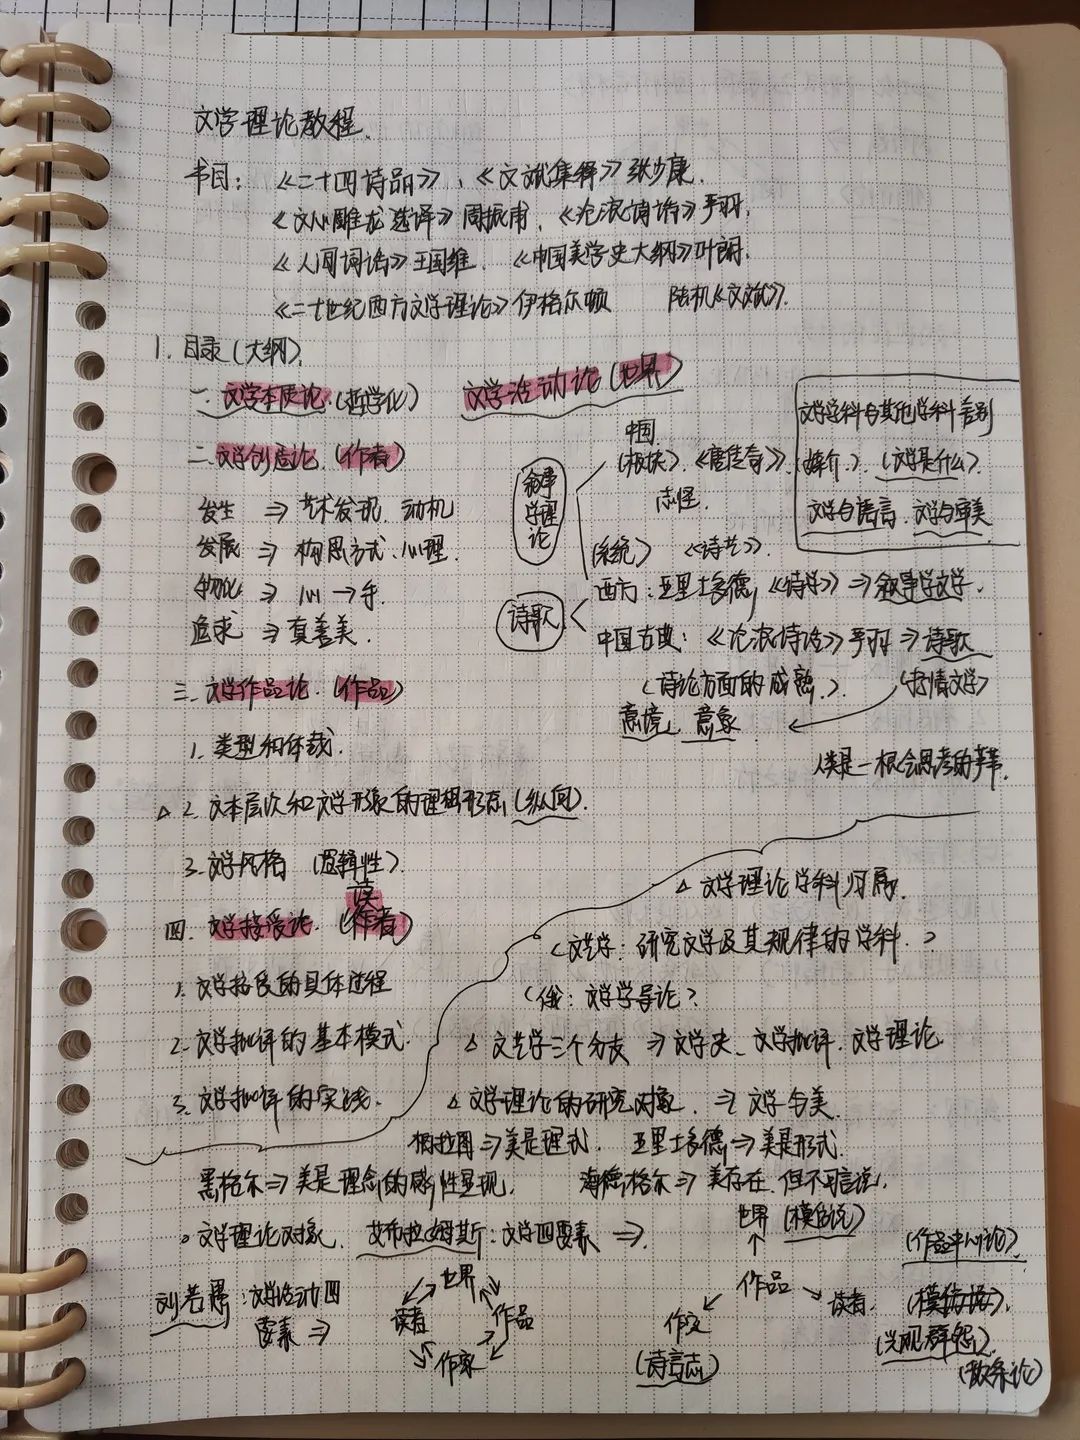 文学理论教程.
书目：《二十四诗品》、《文赋集释》张少康.
《文心雕龙选译》周振甫.《沧浪诗话》严羽.
《人间词话》王国维.《中国美学史大纲》叶朗.
《二十世纪西方文学理论》伊格尔顿 陆机《文赋》.
1. 目录(大纲).
一. 文学本质论.(哲学化) 文学活动论(世界)
二. 文学创造论.(作者)
发生 ⇒ 艺术发现. 动机
发展 ⇒ 构思方式. 心理.
物化 ⇒ 心→手.
追求 ⇒ 真善美.
三. 文学作品论.(作品)
1. 类型和体裁.
△ 2. 文本层次和文学形象的理想形态(纵向).
3. 文学风格 (逻辑性)
读
四. 文学接受论.(作者)
1. 文学接受的具体过程
2. 文学批评的基本模式.
3. 文学批评的实践.
叙事学理论
中国
(板块).《唐传奇》.
志怪.
(系统)《诗艺》.
西方：亚里士多德,《诗学》⇒叙事学文学.
诗歌
中国古典：《沧浪诗话》严羽⇒诗歌
(诗论方面的成熟.). (抒情文学)
意境, 意象
文学学科与其他学科差别
(媒介.). (文学是什么).
文学与语言. 文学与审美
人类是一根会思考的苇草.
△ 文学理论学科归属.
<文艺学：研究文学及其规律的学科.>
(俄：文学学导论?
△ 文艺学三个分支 ⇒ 文学史、文学批评. 文学理论.
△ 文学理论的研究对象. ⇒ 文学与美.
柏拉图⇒美是理式. 亚里士多德⇒美是形式.
黑格尔⇒美是理念的感性显现. 海德格尔⇒美存在.但不可言说.
○ 文学理论对象. 艾布拉姆斯：文学四要素 ⇒.
世界(模仿说)
作品
作家
(诗言志)
读者.
(作品中心论).
(兴观群怨)
(教条论)
刘若愚：文学活动四
要素 ⇒
世界
读者 作品
作家